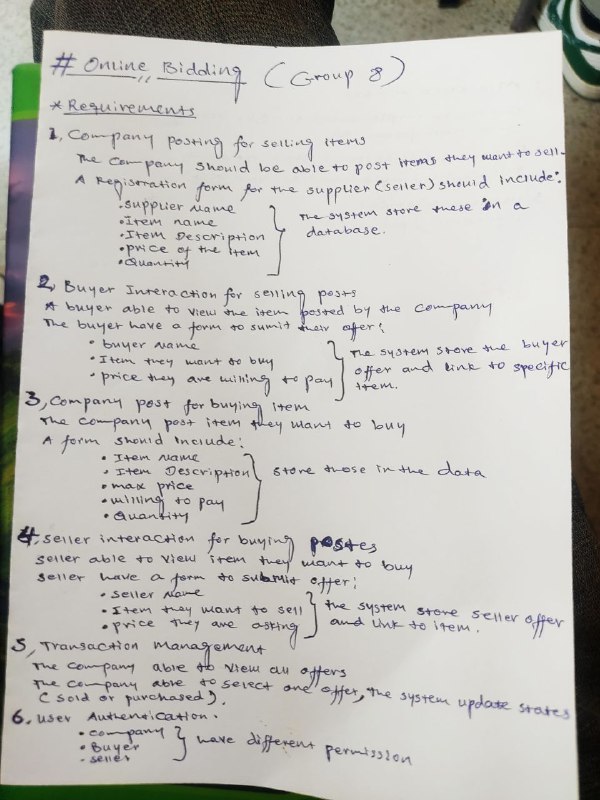 # Online Bidding (Group 8)
* Requirements
1, Company posting for selling items
The Company should be able to post items they want to sell.
A Registration form for the supplier (seller) should include:
• supplier Name
• Item name
• Item Description
• price of the item
• Quantity
The system store these in a
database.
2, Buyer Interaction for selling posts
A buyer able to view the item posted by the company
The buyer have a form to sumit their offer:
• buyer Name
• Item they want to buy
• price they are willing to pay
The system store the buyer
offer and link to specific
item.
3, Company post for buying item
The company post item they want to buy
A form should include:
• Item Name
• Item Description
• max price
• willing to pay
• Quantity
store those in the data
4. seller interaction for buying postes
seller able to view item they want to buy
seller have a form to submit offer:
• seller Name
• Item they want to sell
• price they are asking
the system store seller offer
and link to item.
5, Transaction Management
The company able to view all offers
The company able to select one offer, the system update states
(sold or purchased).
6. user Authentication.
• company
• Buyer
- seller
have different permission